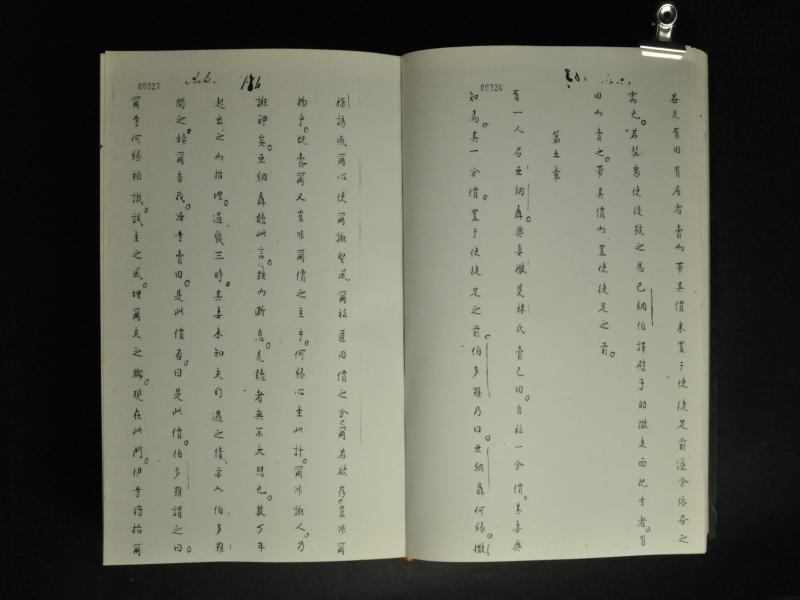 00326
蓋凡有田有屋者賣而帶其價來置于使徒足前遂分依各之
需也。若瑟使徒號之為巴納伯譯慰子助徹支西生者。有
田而賣之。帶其價而置使徒足之前。
第五章
有一人名亞納聶與妻撒斐辣氏賣己田。自秘一分價。其妻與
知焉。其一分價。置于使徒足之前。伯多羅乃曰亞納聶何緣撒
00327
探誘感爾心使爾誑聖風爾秘匿田價之分爾若欲存豈非爾
物乎。既賣爾又豈非爾價之主乎。何緣心生此計。爾非誑人。乃
誑神矣。亞納聶聽此言。跌而斷息。凡聽者無不大懼也。數少年
起出之而抬埋。過幾三時。其妻未知夫所遇之情亦入伯多羅
問之婦爾告我。汝等賣田。是此價否。曰是此價。伯多羅謂之曰
爾等何緣相議試主之風。埋爾夫之腳現在此門。伊等將抬爾